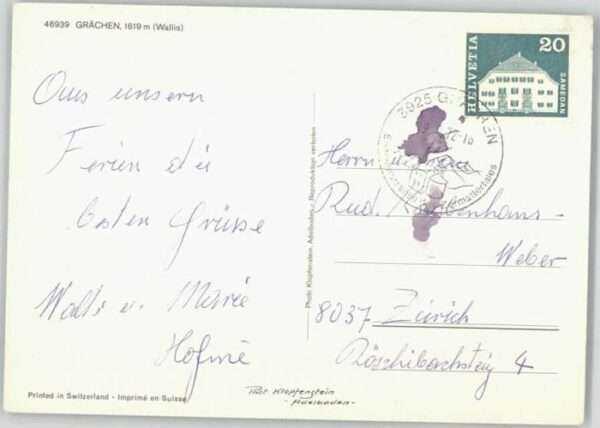 46939 GRÄCHEN, 1619 m (Wallis)
HELVETIA
20
SAMEDAN
3925 GRÄCHEN
Aus unsern
Ferien die
besten Grüsse
Walti u. Marie
Herrn u.
Rud.
Weber
8037 Zürich
Röschibachsteig 4
Photo Klopfenstein, Adelboden - Reproduktion verboten
Printed in Switzerland - Imprimé en Suisse
Phot Klopfenstein
- Adelboden -